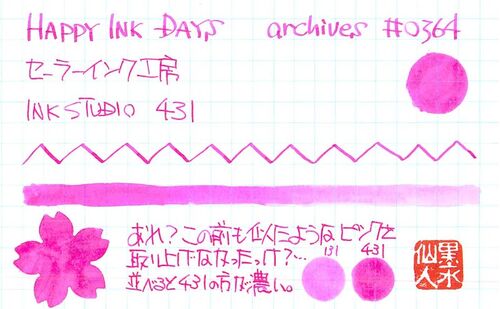 HAPPY INK DAYS archives #0364
セーラーインク工房
INK STUDIO 431
あれ?この前も似たようなピンクを
取り上げなかったっけ?…
並べると431の方が濃い。
131 431
仙人
墨水